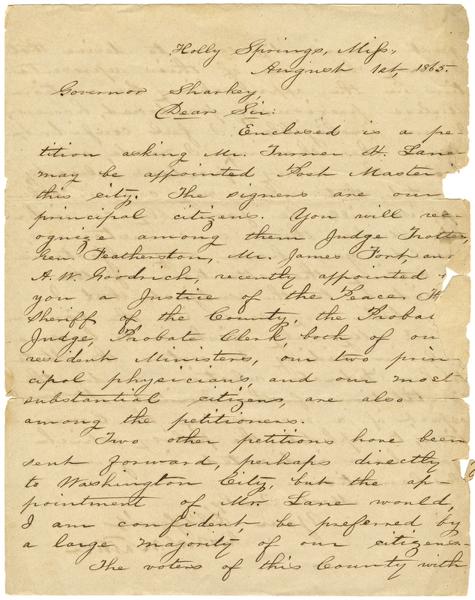 Holly Springs, Miss,
August 1st, 1865.
Governor Sharkey,
Dear Sir:
Enclosed is a pe-
tition asking Mr. Turner H. Lane
may be appointed Post Master
this city. The signers are our
principal citizens. You will rec-
ognize among them Judge Trotter,
Gen Featherston, Mr. James Fort and
A. W. Goodrich recently appointed
you a Justice of the Peace. The
Sheriff of the County, the Probat
Judge, Probate Clerk, both of ou
resident Ministers, our two prin-
cipal physicians, and our most
substantial citizens, are also
among the petitioners.
Two other petitions have been
sent forward, perhaps directly
to Washington City, but the ap-
pointment of Mr. Lane would,
I am confident, be preferred by
a large majority of our citizens.
The voters of this County with